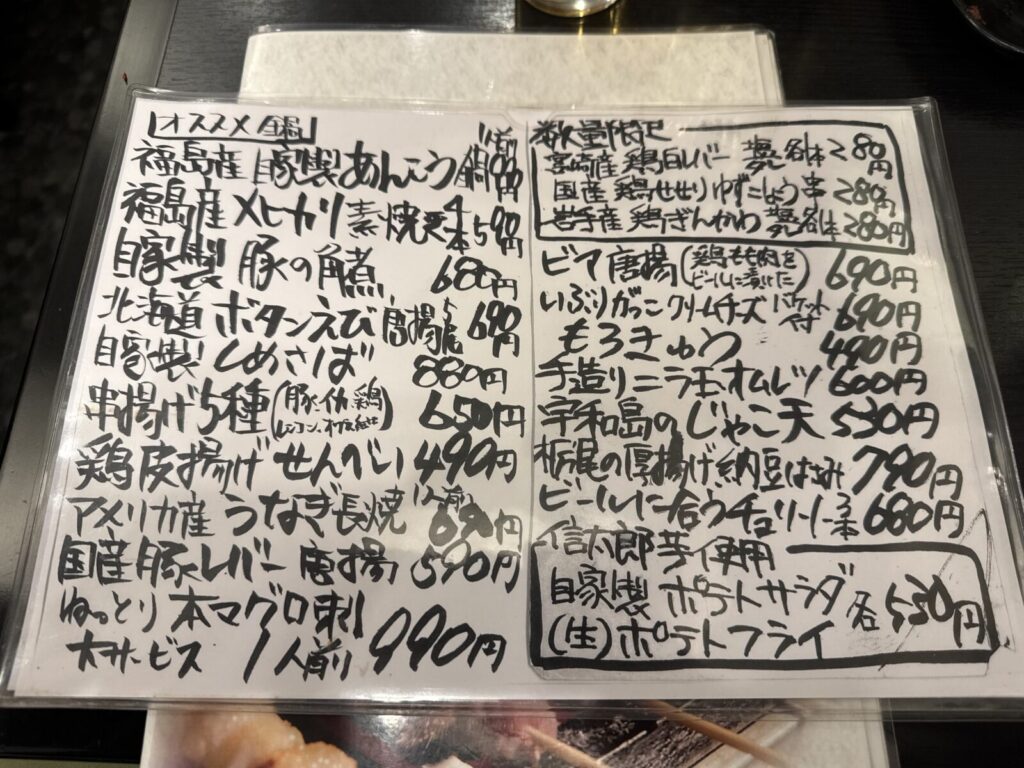 オススメ鍋
福島産 豚製 あんこう鍋 990円
福島産 メヒカリ 素焼 4本590円
自家製 豚の角煮 680円
北海道 ボタンえび 唐揚 690円
自家製 しめさば 880円
串揚げ5種(豚、イカ、鶏 レンコン、) 650円
鶏皮揚げ せんべい 490円
アメリカ産 うなぎ長焼 690円
国産豚レバー 唐揚 590円
ねっとり 本マグロ刺
大サービス 1人前 990円
数量限定
宮崎産 鶏白レバー 塩 各1本 280円
国産 鶏せせりゆずこしょう串 280円
岩手産 鶏ぎんかわ 塩 各1本 280円
ビア唐揚(鶏もも肉をビールに漬けた) 690円
いぶりがっこ クリームチーズ バケット付 690円
もろきゅう 490円
手造りニラ玉オムレツ 600円
宇和島のじゃこ天 530円
栃尾の厚揚げ納豆はさみ 790円
ビールに合うチョリソー 3本 680円
信太郎芋使用
自家製 ポテトサラダ
(生)ポテトフライ 各530円